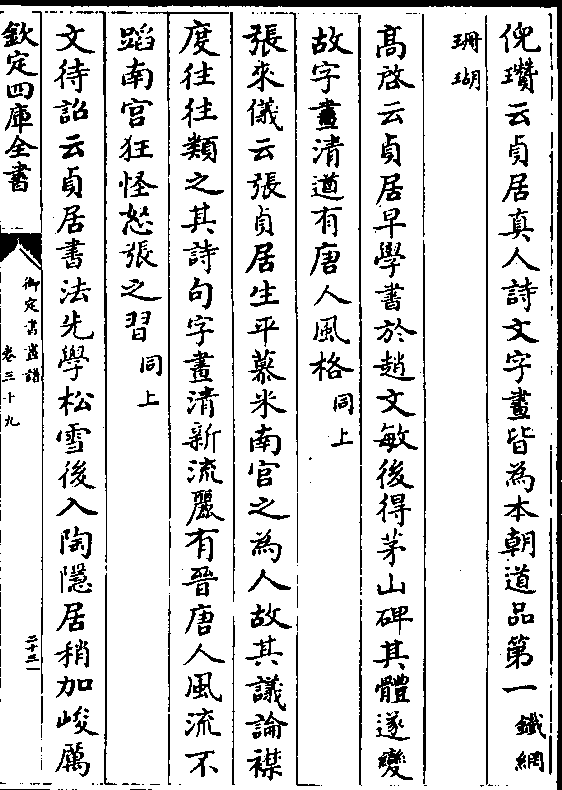 倪瓚云貞居真人詩文字畫皆為本朝道品第一鐵網
珊瑚
髙啓云貞居早學書於趙文敏後得茅山碑其體遂變
故字畫清遒有唐人風格同上
張來儀云張貞居生平慕米南宮之為人故其議論襟
度往往類之其詩句字畫清新流麗有晉唐人風流不
蹈南宮狂怪怒張之習同上
文待詔云貞居書法先學松雪後入陶隱居稍加峻厲
欽定四庫全書
御定書畫譜
卷三十九
二十三